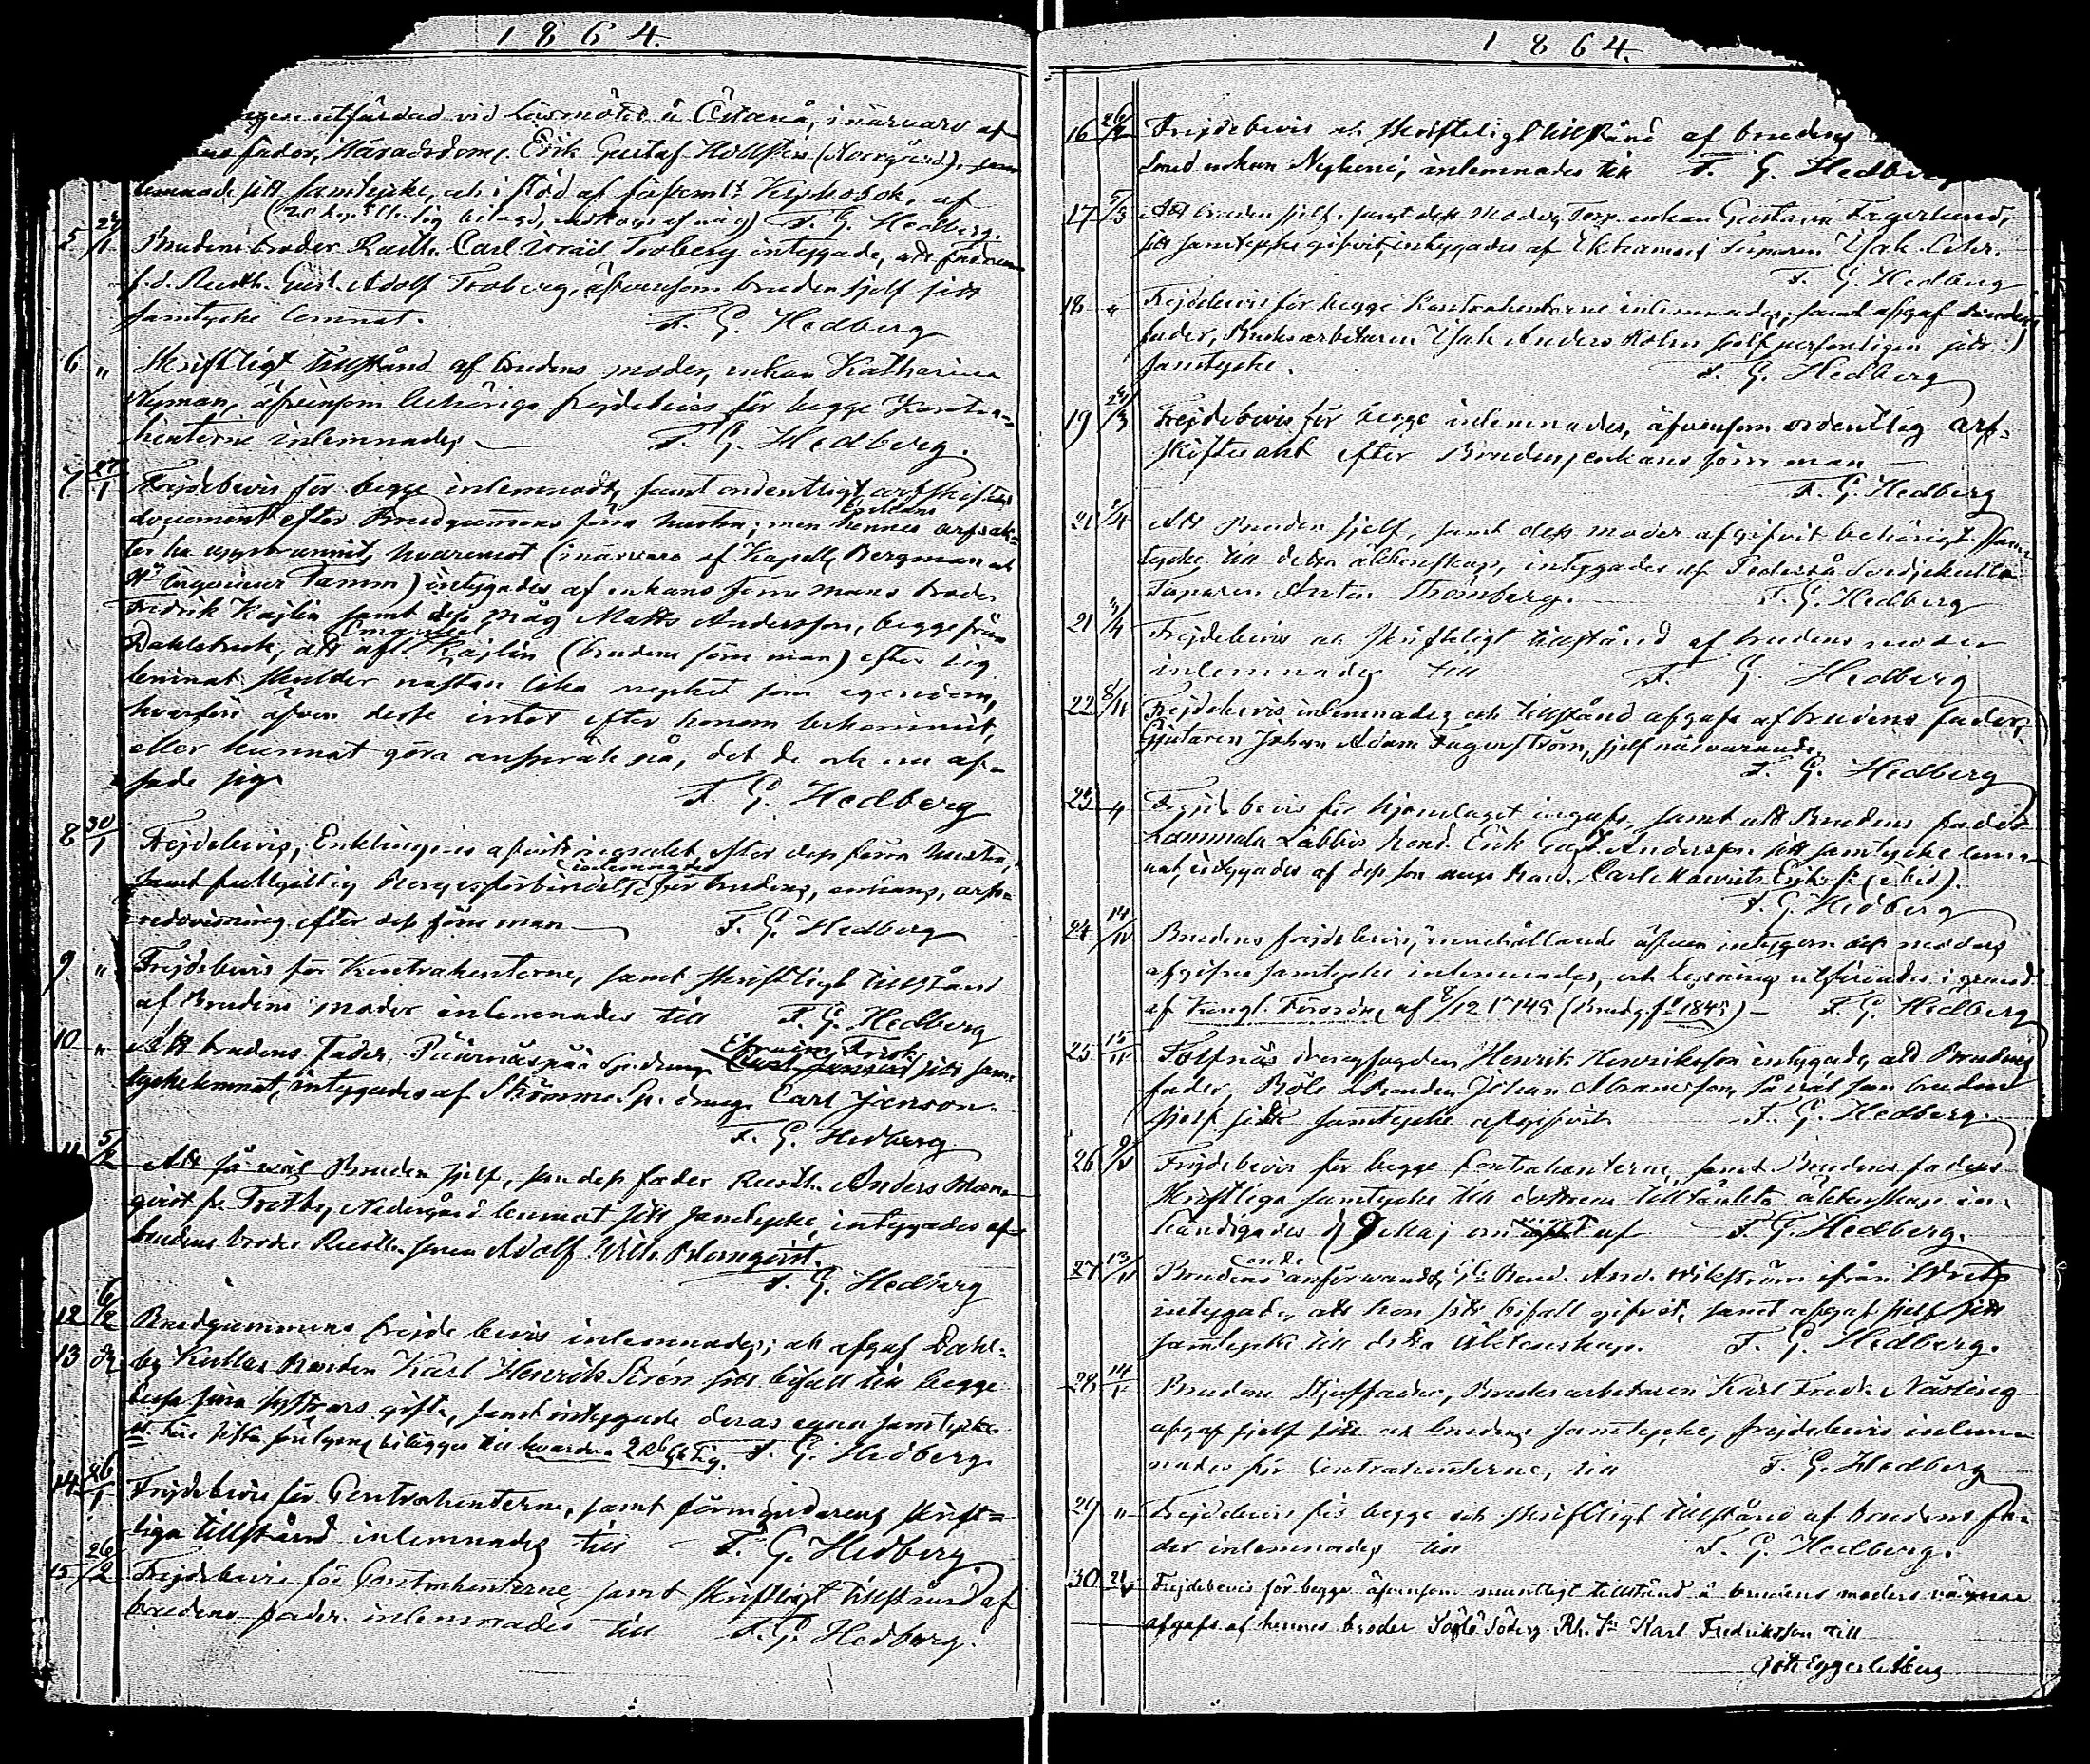 1864.
utfärdad vid Läsmötet å Östanå, i närvaro af
fader, Häradsdom. Erik Gustaf Hollsten (Norrgård),
lemnade sitt samtycke, och i stöd af
F. G. Hedberg.
5 Brudens broder Rusth. Carl Israël Troberg intygade, att fadren
f.d. Rusth. Gust. Adolf Troberg, äfvensom bruden sjelf sitt
samtycke lemnat. F. G. Hedberg
6 " Skriftligt tillstånd af brudens moder, enkan Katharina
Nyman, äfvensom behöriga frejdebevis för begge Kontra-
henterne inlemnades F. G. Hedberg.
7 27/1 Frejdebevis för begge inlemnades, samt ordentligt arfskiftes
document efter Brudgummens förra hustru; men hennes
enkans
hvaremot (i närvaro af Kapell. Bergman och
Hr Ingenieur Tamm) intygades af enkans förre mans broder
Fredrik Kajlin samt dess måg Matts Andersson, begge från
Dahlsbruk, att afl. Kajlin (brudens förre man) efter sig
lemnat skulder nästan lika mycket som egendom,
hvarföre äfven desse intet efter honom bekommit,
eller kunnat göra anspråk på, det de och nu af-
sade sig. F. G. Hedberg
8 30/1 Frejdebevis, Enklingens afvittringsakt efter dess förra hustru,
inlemnades
samt fullgiltig Borgesförbindelse för brudens, enkans, arf-
redovisning efter dess förre man F. G. Hedberg
9 " Frejdebevis för Kontrahenterne, samt skriftligt tillstånd
af Brudens moder inlemnades till F. G. Hedberg
10 " Att brudens fader, Päärnäspää Ephraim Frisk sitt sam-
tycke lemnat, intygades af Strömma Sp. dreng Carl Janson.
F. G. Hedberg
11 5/2 Att så wäl Bruden sjelf, som dess fader Rusth. Anders Blom-
qvist fr. Tretby Nedergård lemnat sitt samtycke, intygades af
brudens broder Rusth. sonen Adolf Wilh. Blomqvist.
F. G. Hedberg
12 6/2 Brudgummens frejdebevis inlemnades; och afgaf Dahl-
13 by Kullas Bonden Karl Henrik Sirén sitt bifall till begge
dessa sina systrars gifte, samt intygade deras egna samtycke
F. G. Hedberg.
14 26/1 Frejdebevis för Contrahenterne, samt förmyndarens skrift-
liga tillstånd inlemnades till F. G. Hedberg.
15 26/2 Frejdebevis för Contrahenterne, samt skriftligt tillstånd af
brudens fader inlemnades till F. G. Hedberg.
1864.
16 26/2 Frejdebevis och skriftligt tillstånd af brudens
inlemnades till F. G. Hedberg
17 5/3 Att bruden sjelf, samt dess moder, Torp. enkan Gustava Fagerlund,
sitt samtycke gifvit, intygades af Ekhamns Torparen Isak Lehr.
F. G. Hedberg
18 " Frejdebevis för begge Kontrahenterne inlemnades, samt afgaf brudens
fader, Bruksarbetaren Isak Anders Holm sjelf personligen sitt
samtycke. F. G. Hedberg
19 24/3 Frejdebevis för begge inlemnades, äfvensom ordentlig arf-
skiftesakt efter Brudens, enkans förre man
F. G. Hedberg
/4 Att Bruden sjelf, samt dess moder afgifvit behörigt sam-
tycke till detta äktenskap, intygades af
Torparen Anton Strömberg. F. G. Hedberg
21 /4 Frejdebevis och skriftligt tillstånd af brudens moder
inlemnades till F. G. Hedberg
22 8/4 Frejdebevis inlemnades och tillstånd afgafs af brudens fader,
Gjutaren Johan Adam Fagerström, sjelf närvarande.
F. G. Hedberg
23 Frejdebevis för hjonelaget ingafs, samt att Brudens fader
Lammala Labbis Bond. Erik Gust. Andersson sitt samtycke lem-
nat, intygades af dess son unga Bond. Carl Mauritz Eriks. (ibid).
F. G. Hedberg
24 14/IV Brudens frejdebevis, innehållande äfven intygan dess moders
afgifna samtycke inlemnades, och lysning utfärdades i grund
af Kungl. Förordn. af 8/12 1749 F. G. Hedberg
25 15/IV Tolfnäs drengfogden Henrik Henriksson intygade, att Brudens
fader, Böle Bonden Johan Abramsson, så wäl som bruden
sjelf sitt samtycke afgifvit. F. G. Hedberg.
26 9/V Frejdebevis för begge Contrahenterne, samt Brudens faders
skriftliga samtycke till dottrens tilltänkta äktenskap in-
händigades d 9 Maj af F. G. Hedberg.
27 13/V Brudens anförwandt, Bond. And. Wikström ifrån
intygade, att hon sitt bifall gifvit, samt afgaf sjelf sitt
samtycke till detta äktenskap. F. G. Hedberg.
28 14/V Brudens Styffader, Bruksarbetaren Karl Fredr. Näsling
afgaf sjelf sitt och brudens samtycke; frejdebevis inlem-
nades för Contrahenterne, till F. G. Hedberg
29 " Frejdebevis för begge och skriftligt tillstånd af brudens fa-
der inlemnades till F. G. Hedberg.
30 21/V Frejdebevis för begge äfvensom muntligt tillstånd å brudens moders vägnar
afgafs af hennes broder Sörlö Söderg. Rh. Sn Karl Fredriksson till